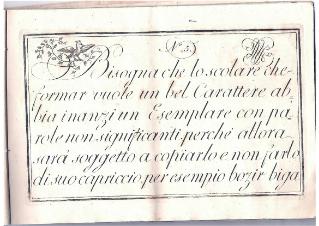 N.º 5.
Bisogna che lo scolare che
formar vuole un bel Carattere ab,
bia inanzi un Esemplare con pa,
role non significanti perché allora
sará soggetto a copiarlo e non farlo
di suo capriccio per esempio bozir biga